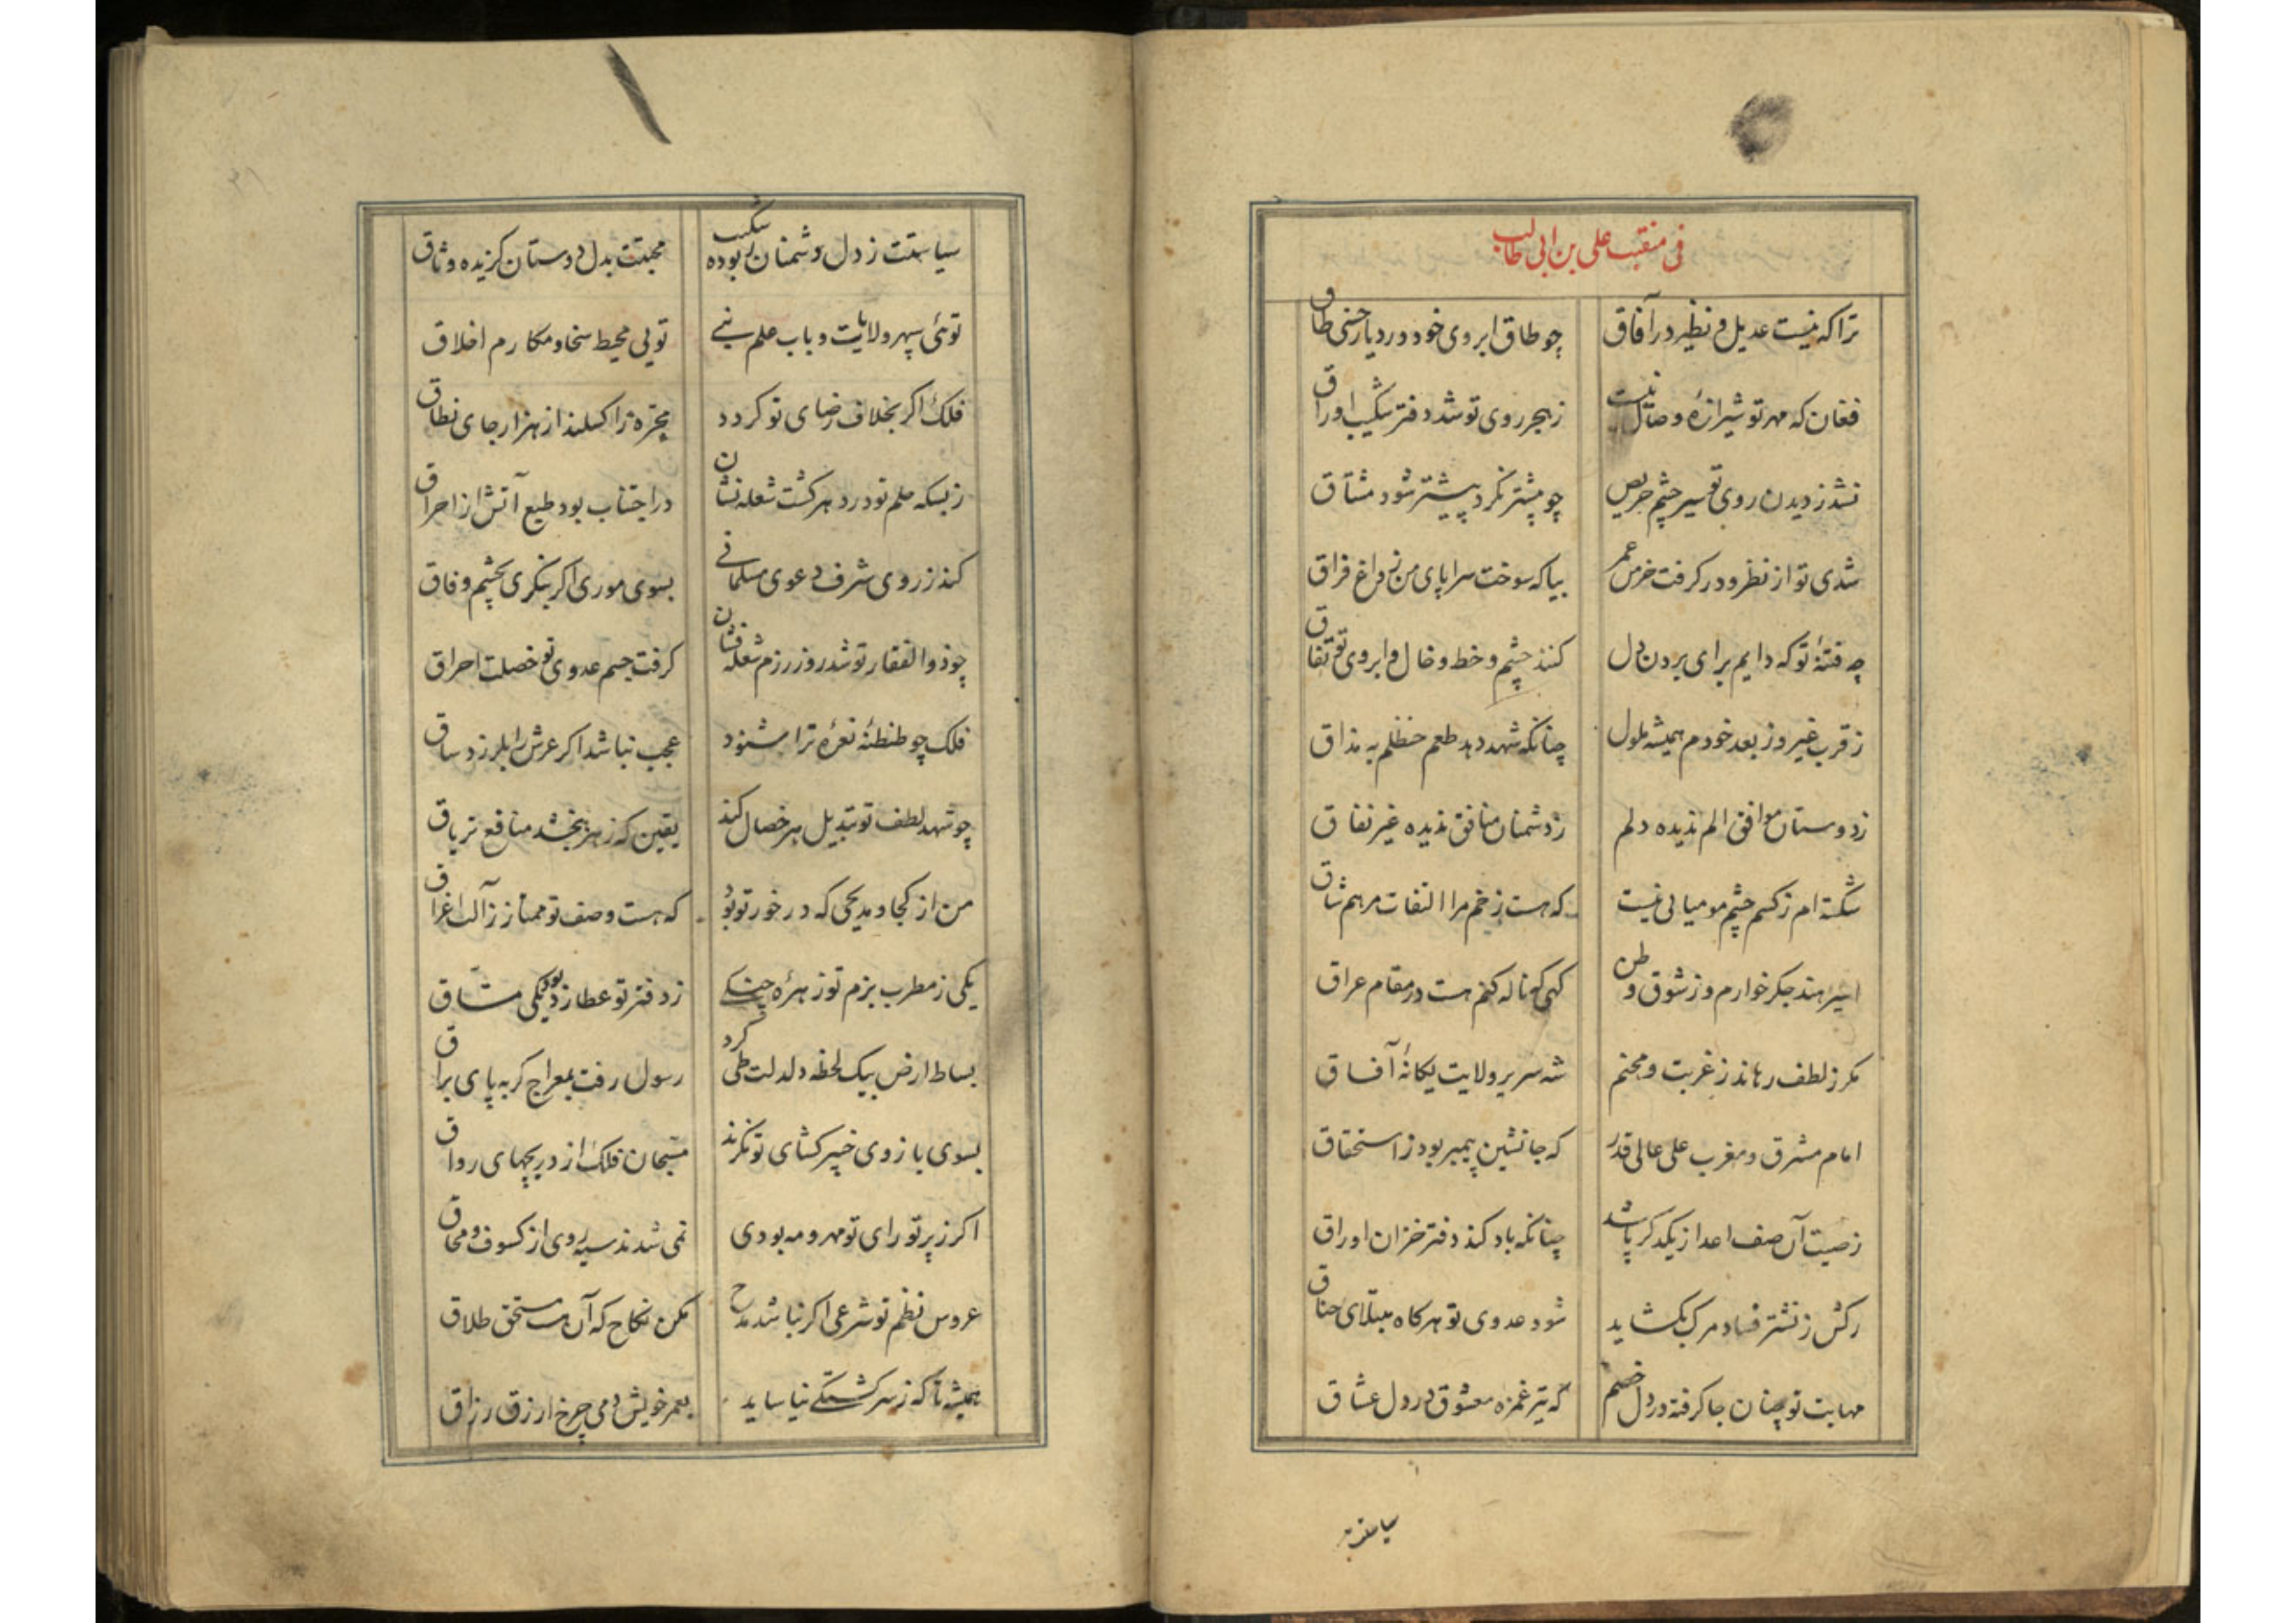 فی منقبت علی بن ابی طالب
ترا که نیست عدیل و نظیر در آفاق چو طاق ابروی خود در دیار حسنی طاق
فغان که مهر تو شیرازهٔ وصال نیست ز هجر روی تو شد دفتر شکیب اوراق
نشد ز دیدن روی تو سیر چشم حریص چو بیشتر نکرد بیشتر شود مشتاق
شدی تو از نظر و در کرفت خرمن عمر بیا که سوخت سراپای من ز داغ فراق
چه فتنهٔ تو که دایم برای بردن دل کنند چشم و خط و خال و ابروی تو اتفاق
ز قرب غیر و ز بعد خودم همیشه ملول چنانکه شهد دهد طعم حنظلم به مذاق
ز دوستان موافق الم ندیده دلم ز دشمنان منافق ندیده غیر نفاق
شکسته ام ز کسم چشم مومیایی نیست که هست زخم مرا التفات مرهم شاق
اسیر هند جکرخوارم و ز شوق وطن کهی که ناله کنم هست در مقام عراق
مکر ز لطف رهاند ز غربت و محنم شه سریر ولایت یکانهٔ آفاق
امام مشرق و مغرب علی عالی قدر که جانشین پیمبر بود ز استحقاق
ز صیت آن صف اعدا ز یکدکر پاشد چنانکه باد کند دفتر خزان اوراق
رکش ز نشتر فصاد مرک بکشاید شود عدوی تو هرکاه مبتلای خناق
مهابت تو چنان جا کرفته در دل خصم که تیر غمزه معشوق در دل عشاق
سیاستت
سیاستت ز دل دشمنان ربوده شکیب محبتت بدل دوستان کزیده وثاق
توئی سپهر ولایت و باب علم نبی تویی محیط سخا و مکارم اخلاق
فلک اکر بخلاف رضای تو کردد مجره را کسلند از هزار جای نطاق
ز بسکه حلم تو در دهر کشت شعله نشان در اجتناب بود طبع آتش از احراق
کند ز روی شرف دعوی مسلمانی بسوی موری اکر بنکری بچشم وفاق
چو ذوالفقار تو شد روز رزم شعله فشان کرفت جسم عدوی تو خصلت احراق
فلک چو طنطنهٔ نعرهٔ ترا شنود عجب نباشد اکر عرش را بلرزد ساق
چو شهد لطف تو تبدیل هر خصال کند یقین که زهر ببخشد منافع تریاق
من از کجا و مدیحی که در خور تو بود که هست وصف تو ممتاز ز آلت اغراق
یکی ز مطرب بزم تو زهرهٔ چنکی ز دفتر تو عطارد بود یکی مشاق
بساط ارض بیک لحظه دلدلت طی کرد رسول رفت بمعراج کر به پای براق
بسوی بازوی خیبر کشای تو نکرند مسبحان فلک از دریچهای رواق
اکر ز پرتو رای تو مهر و مه بودی نمی شدند سیه روی از کسوف و محاق
عروس نظم تو شرعی اکر نباشد مدح مکن نکاح که آن هست مستحق طلاق
همیشه تا که ز سرکشتکی نیاساید بعمر خویش دمی چرخ ازرق رزاق